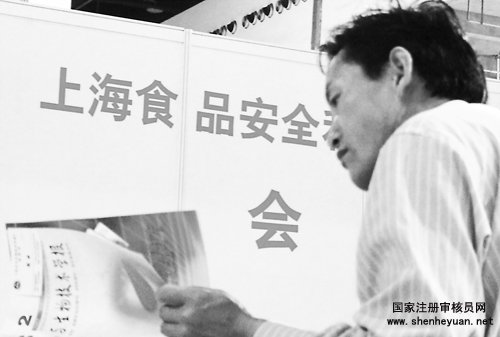 上海食品安全
会
生物技术学报
国家注册审核员网
www.shenheyuan.net